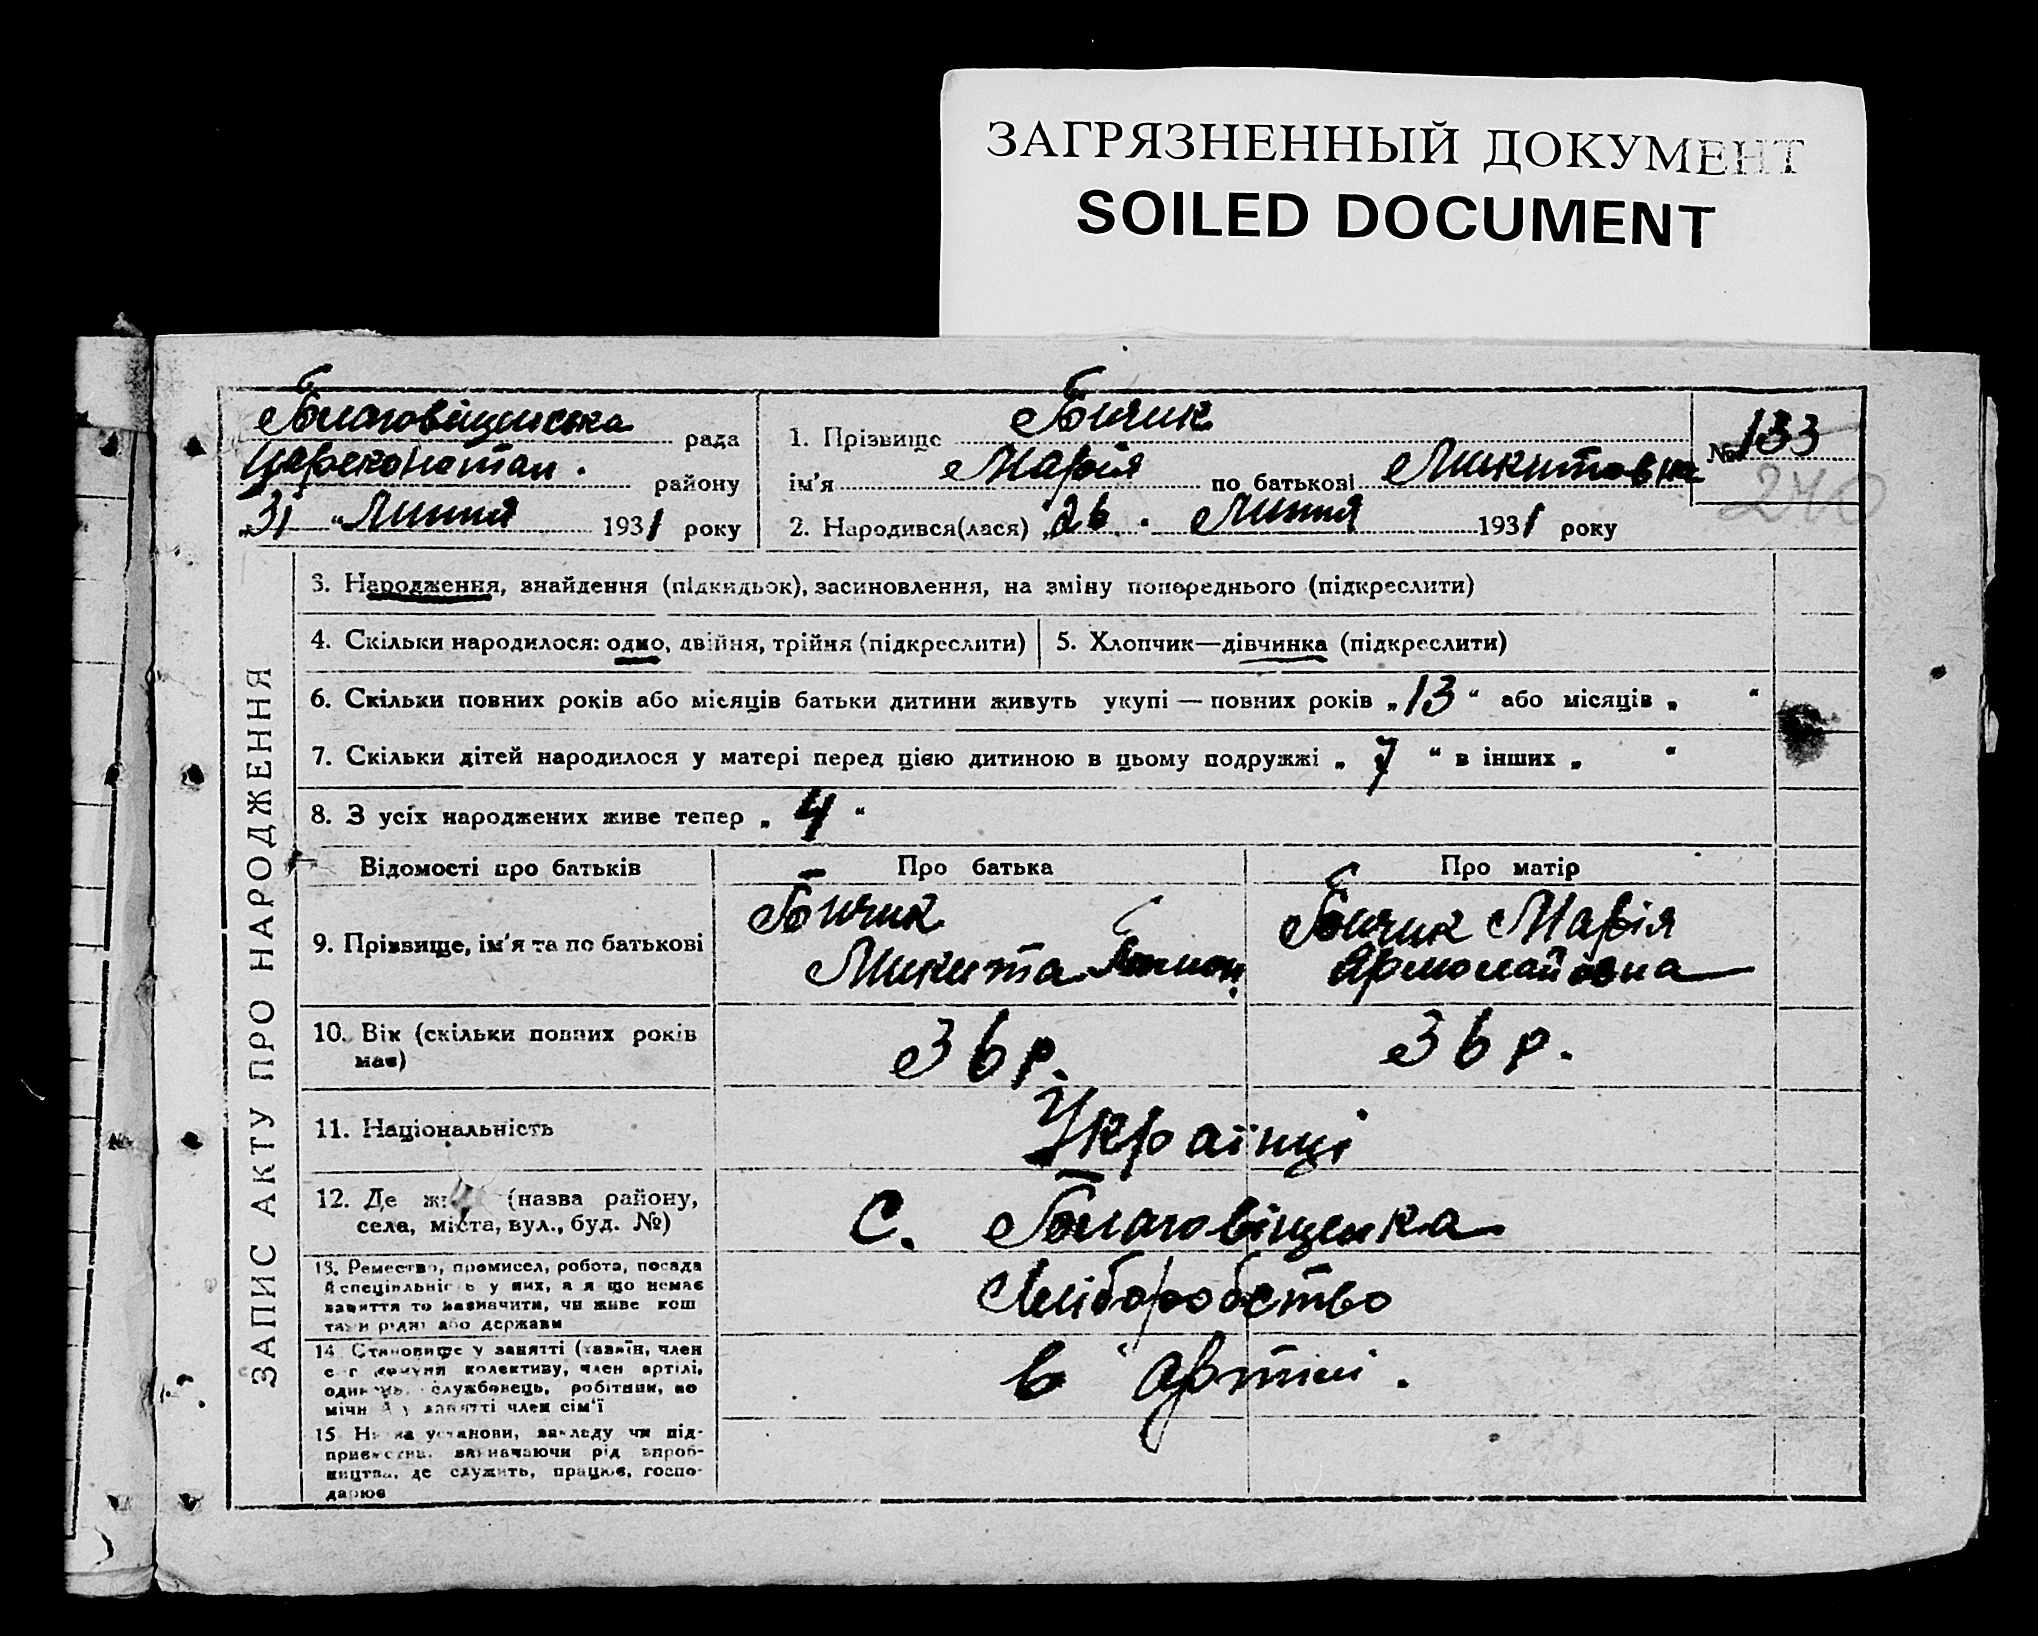 ЗАГРЯЗНЕННЫЙ ДОКУМЕНТ
SOILED DOCUMENT
Благовіщенська рада
Цареконстан. району
„31" Липня 1931 року
1. Прізвище Бичик
ім'я Марія по батькові Микитовна
2. Народився(лася) „26. Липня 1931 року
№ 133
240
ЗАПИС АКТУ ПРО НАРОДЖЕННЯ
3. Народження, знайдення (підкидьок), засиновлення, на зміну попереднього (підкреслити)
4. Скільки народилося: одно, двійня, трійня (підкреслити)
5. Хлопчик—дівчинка (підкреслити)
6. Скільки повних років або місяців батьки дитини живуть укупі — повних років „13" або місяців „ "
7. Скільки дітей народилося у матері перед цією дитиною в цьому подружжі „ 7 " в інших „ "
8. З усіх народжених живе тепер „ 4 "
Відомості про батьків
Про батька
Про матір
9. Прізвище, ім'я та по батькові
Бичик
Микита
Бичик Марія
Ярмолайовна
10. Вік (скільки повних років має)
36 р.
36 р.
11. Національність
Українці
12. Де (назва району,
села, міста, вул., буд. №)
С. Благовіщенка
13. Ремество, промисел, робота, посада
й спеціяльність у них, а якщо немає
заняття то зазначити, чи живе кош
тами рідні або держави
Хліборобство
14. Становище у занятті (хазяїн, член
колективу, член артілі,
службовець, робітник, по
занятті член сім'ї
в артілі.
15. Назва установи, закладу чи під-
приємства, зазначаючи рід вироб-
ництва, де служить, працює, госпо-
дарює